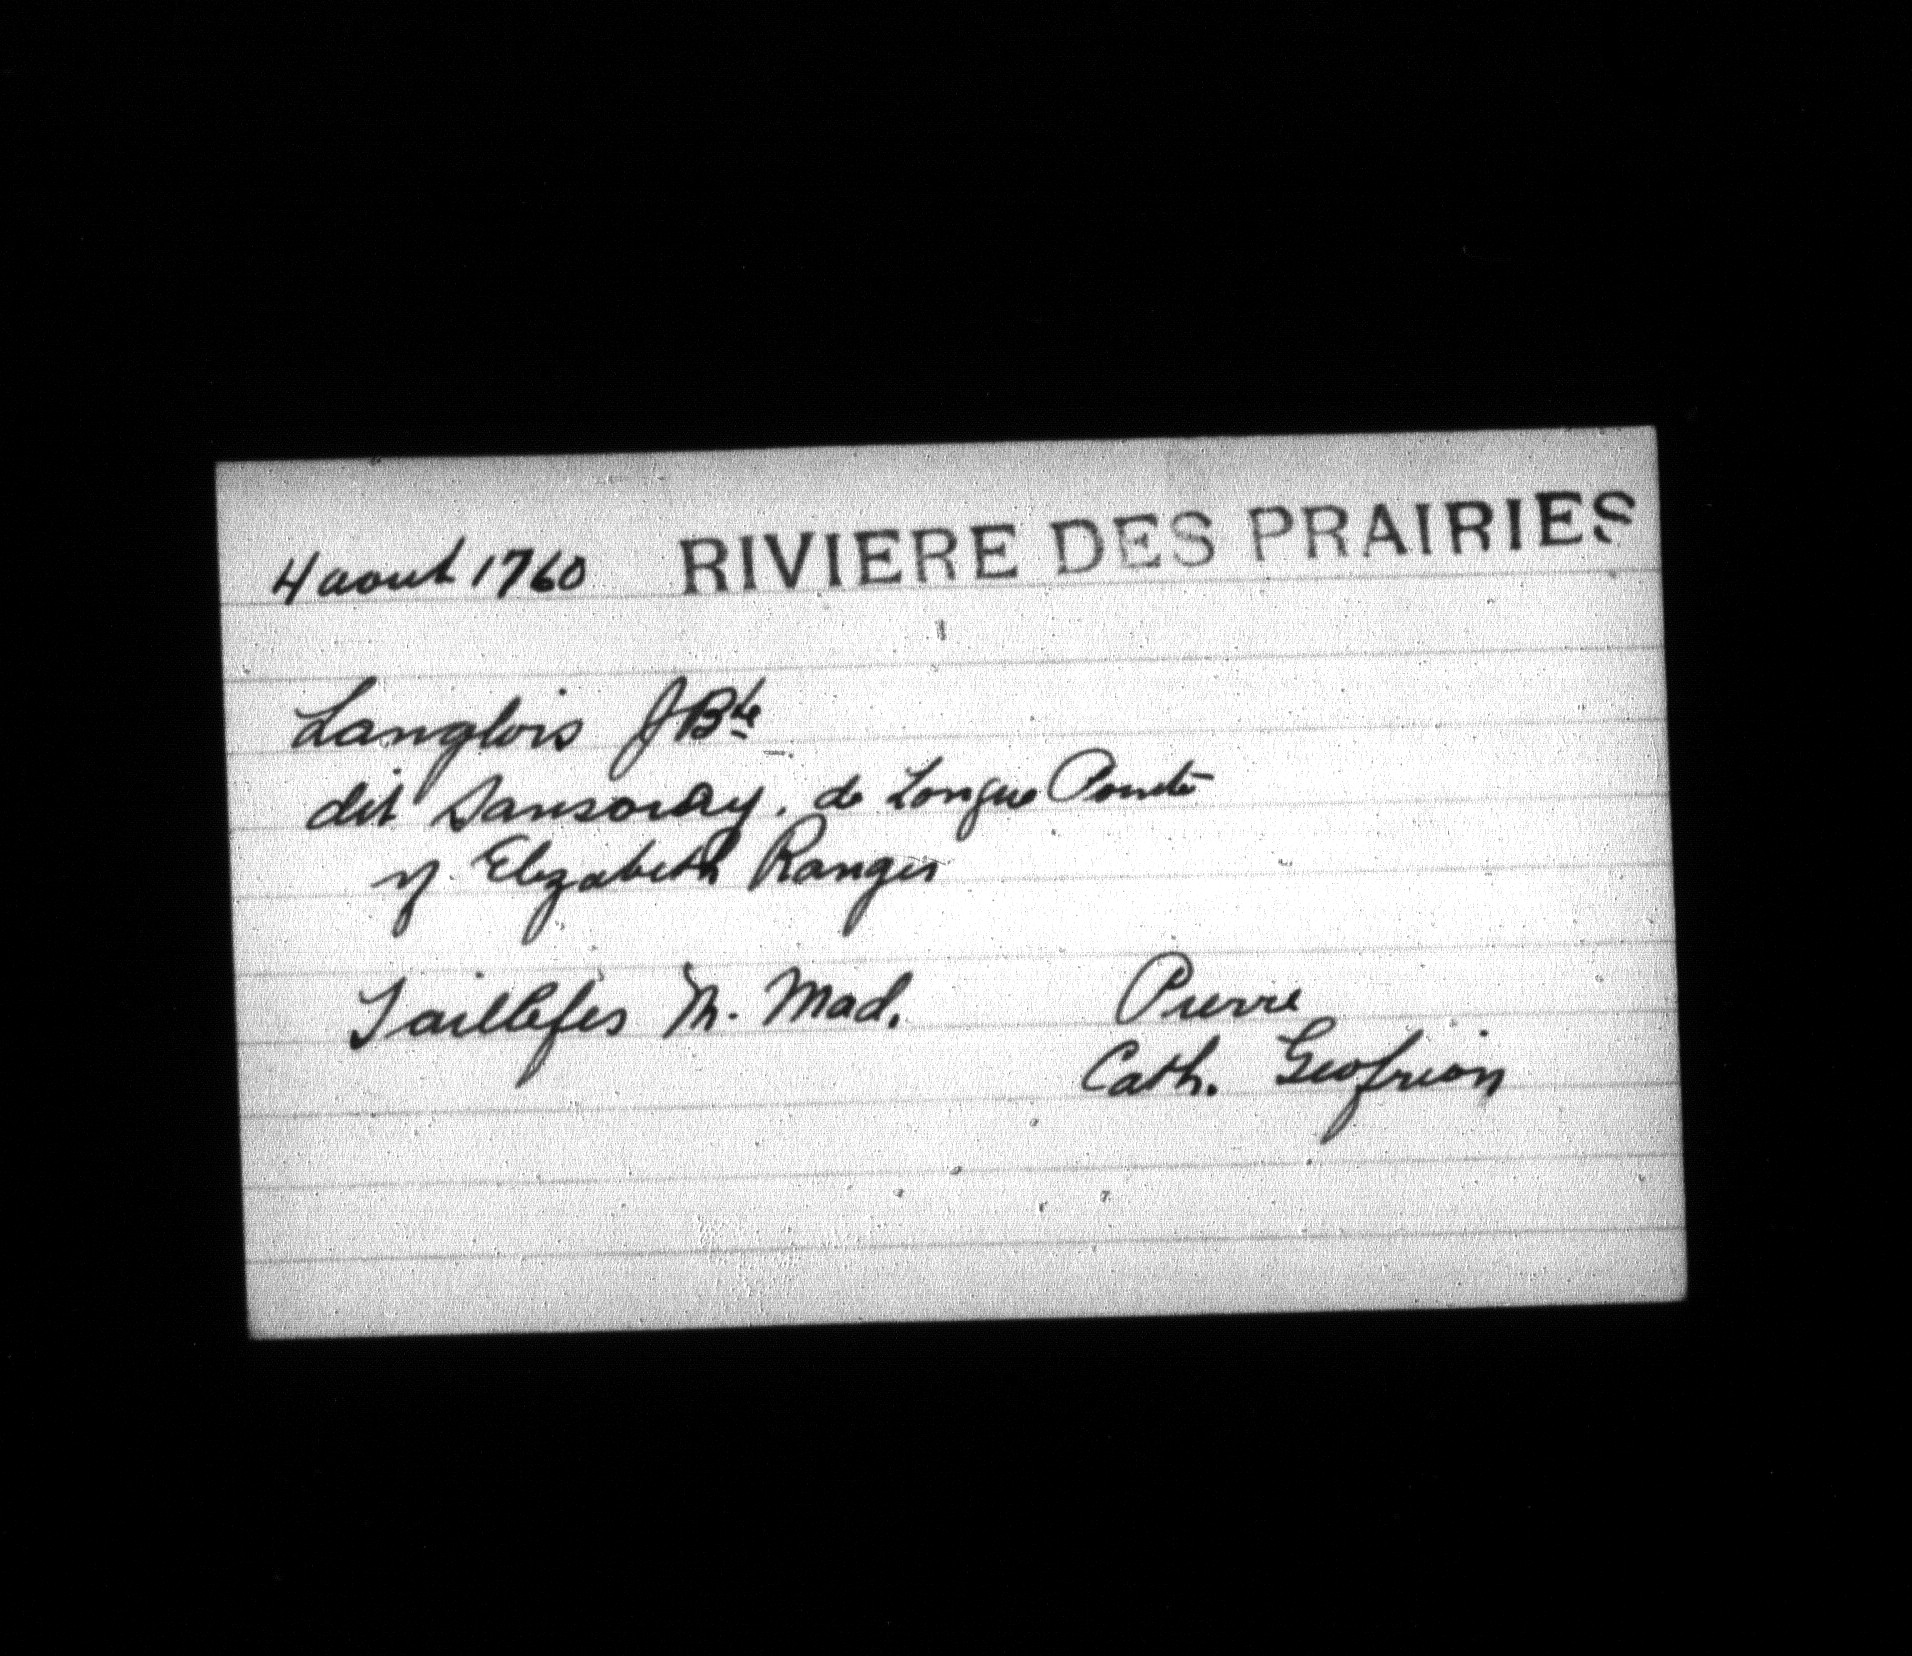 4 aout 1760 RIVIERE DES PRAIRIES
Langlois JBte
dit Sansoucy. de Longue Pointe
v Elizabeth Ranger
Taillefer M. Mad. Pierre
Cath. Geofrion